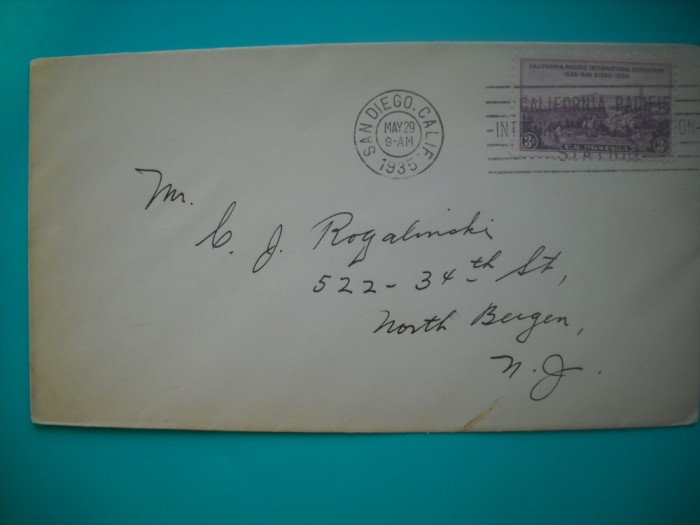 CALIFORNIA PACIFIC INTERNATIONAL EXPOSITION
1935·SAN DIEGO·1935
3¢ U.S. POSTAGE 3¢
SAN DIEGO, CALIF.
MAY 29
9-AM
1935
CALIFORNIA PACIFIC
STATION
Mr.
C. J. Rogalinski
522-34th St,
North Bergen,
N.J.